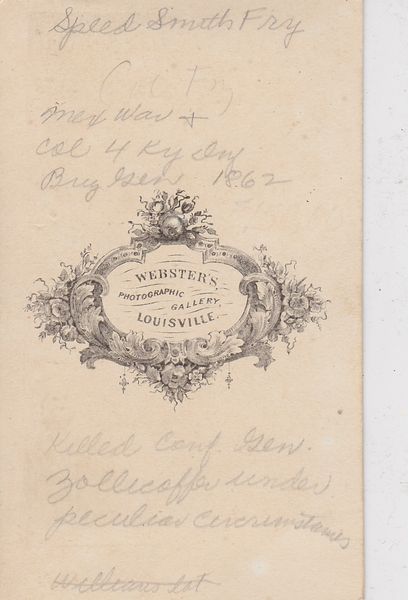 Speed Smith Fry
Mex War +
Col 4 Ky Inf
Brig Gen 1862
WEBSTER'S
PHOTOGRAPHIC
GALLERY,
LOUISVILLE.
Killed Conf. Gen.
Zollicoffer under
peculiar circumstances